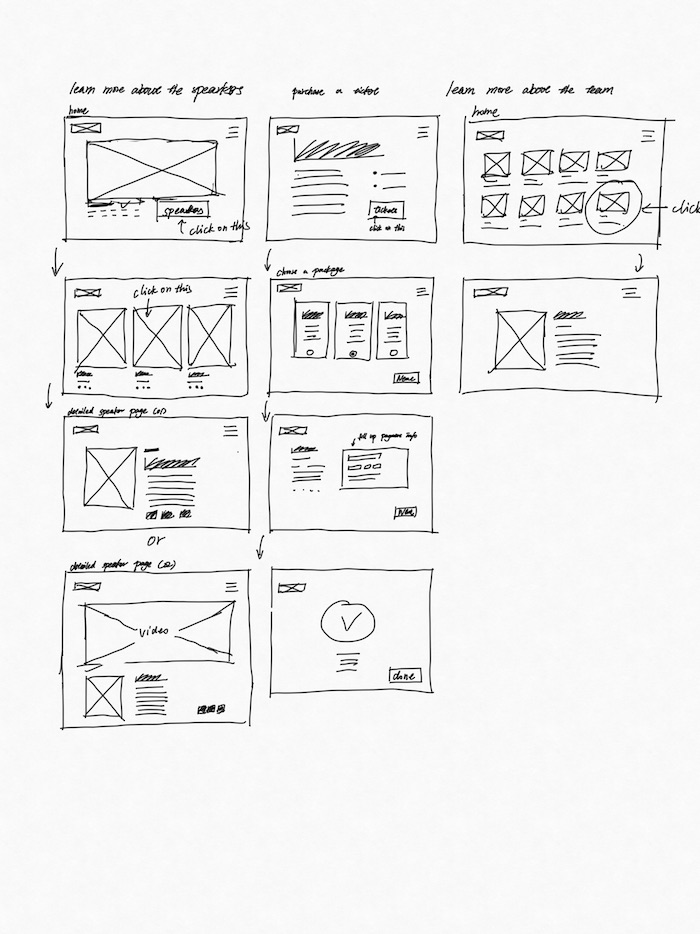 learn more about the speakers
home
speakers
click on this
click on this
detailed speaker page (01)
or
detailed speaker page (02)
video
purchase a ticket
tickets
click on this
choose a package
fill up payment info
done
learn more about the team
home
click